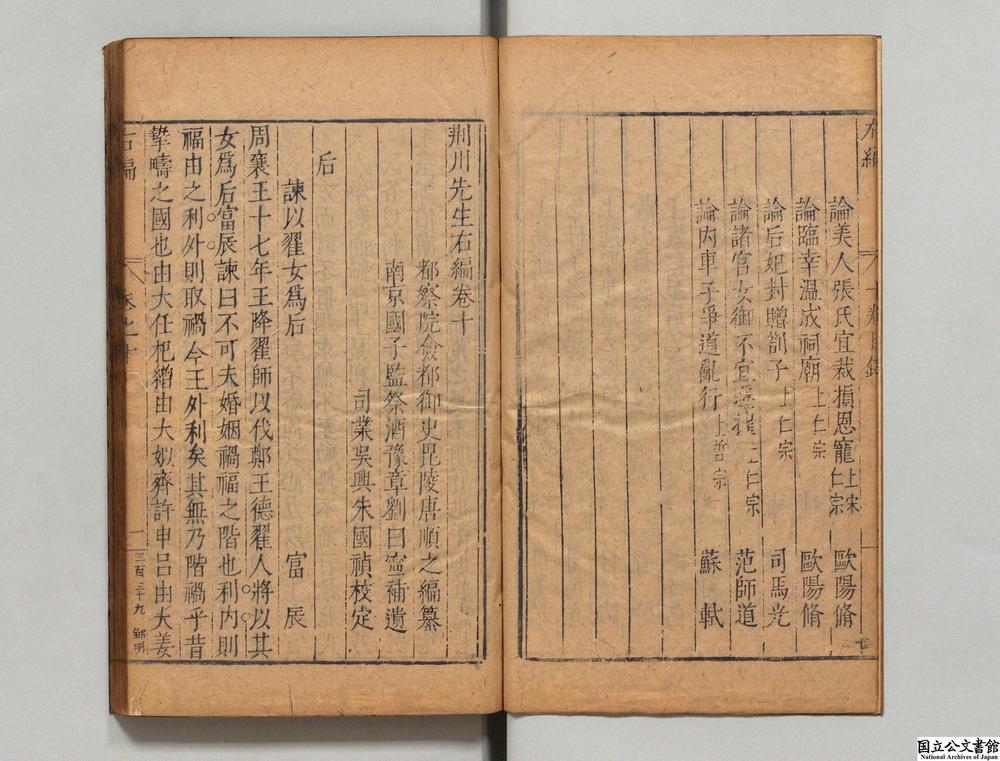 右編
十卷目錄
論美人張氏宜裁損恩寵上宋仁宗 歐陽脩
論臨幸溫成祠廟上仁宗 歐陽脩
論后妃封贈劄子上仁宗 司馬光
論諸宮女御不宜 上仁宗 范師道
論內車子爭道亂行上哲宗 蘇軾
荆川先生右編卷十
都察院僉都御史毘陵唐順之編纂
南京國子監祭酒豫章劉曰寧補遺
司業吳興朱國禎校定
后
諫以翟女爲后 富辰
周襄王十七年王降翟師以伐鄭王德翟人將以其
女爲后富辰諫曰不可夫婚姻禍福之階也利內則
福由之利外則取禍今王外利矣其無乃階禍乎昔
摯疇之國也由大任杞繒由大姒齊許申呂由大姜
右編
卷之十
一
三百三十九
鄒明
国立公文書館
National Archives of Japan